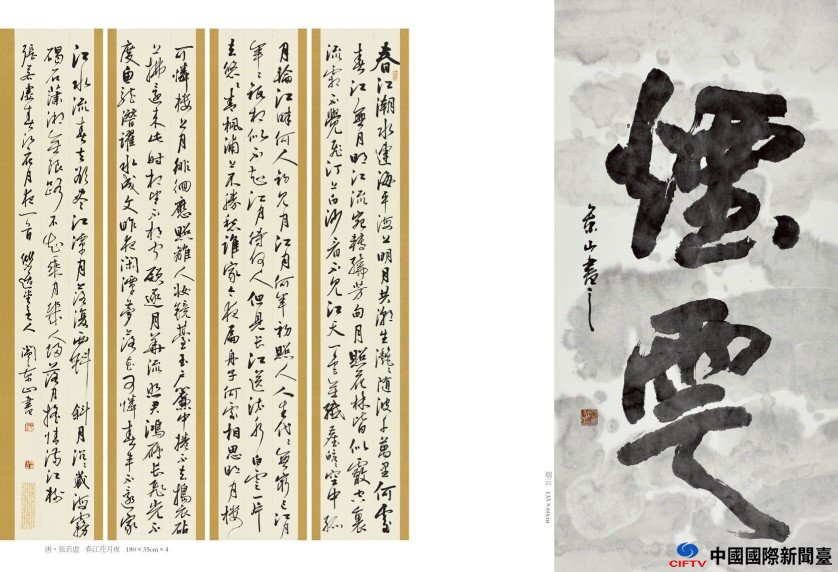 春江潮水連海平海上明月共潮生灩灩随波千萬里何處
春江無月明江流宛轉繞芳甸月照花林皆似霰空裏
流霜不覺飛汀上白沙看不見江天一色無纖塵皎皎空中孤
月輪江畔何人初見月江月何年初照人人生代代無窮已江月
年年祇相似不知江月待何人但見長江送流水白雲一片
去悠悠青楓浦上不勝愁誰家今夜扁舟子何處相思明月樓
可憐樓上月徘徊應照離人妝鏡臺玉戶簾中捲不去搗衣砧
上拂還來此時相望不相聞願逐月華流照君鴻雁長飛光不
度魚龍潛躍水成文昨夜閑潭夢落花可憐春半不還家
江水流春去欲盡江潭月落復西斜斜月沉沉藏海霧
碣石瀟湘無限路不知乘月幾人歸落月搖情滿江樹
張若虛春江花月夜一首 主人 山書
唐·张若虚 春江花月夜 180×35cm×4
煙雲
山書之
烟云 135×60cm
CIFTV 中國國際新聞臺